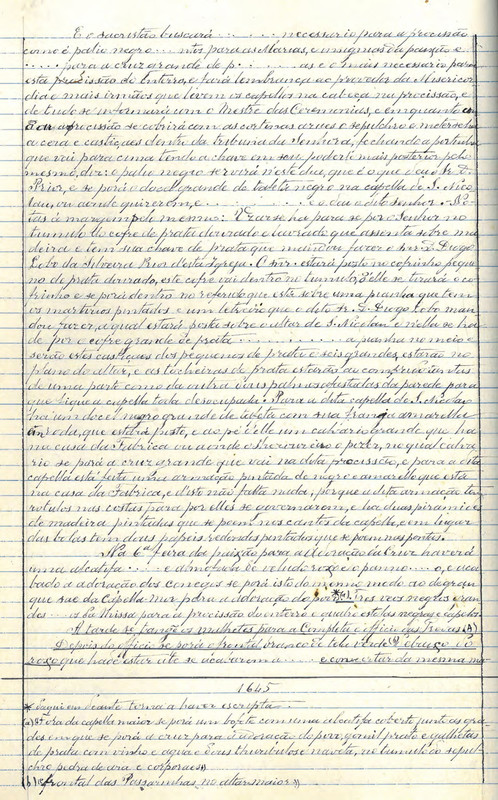 E o sacristão buscará . . . . . . . . necessario para a procissão
como é palio negro . . . ntos para as Marias, e insignias da paixão e
. . . . . . para a cruz grande de p. . . . . . . as e o mais necessario para
esta procissão do Enterro, e fará lembrança ao provedor da Misericor
dia e mais irmãos que levem os capellos na cabeça na procissão, e
de tudo se informará com o Mestre das Ceremonias, e emquanto
a procissão se cobrirá com as cortinas o sepulchro e meter-se ha
a cera e castiçaes dentro da tribuna da Senhora, fechando a portinha
que vai para cima tendo a chave em seu poder e mais posterior pelo
mesmo, diz: o palio negro servirá neste dia, que é o que o sr. D.
Prior, e se porá o docel grande de tabete negro na capella de S. Nico
lau, ou aonde quizerem, e . . . . . . . . . . e o deu o dito senhor No
tas á margem do mesmo: Uzar-se ha para se por o Senhor no
tumulo do cofre de prata dourado e lavrado que assenta sobre ma
deira e tem sua chave de prata que mandou fazer o snr. D. Diogo
Lobo da Silveira Prior desta Igreja. O snr. estará posto no cofrinho peque
no de prata dourado, este cofre vai dentro no tumulo, d'elle se tirará o co
frinho e se porá dentro no referido que está sobre uma pianha que tem
os martirios pintados e um letreiro que o dito sr. D. Diogo Lobo man
dou fazer, a qual estará posta sobre o altar de S. Nicolau e n'ella se ha
de por o cofre grande de prata . . . . . . . . . . a pianha no meio e
serão estes castiçaes dos pequenos de prata e seis grandes, estarão no
plano do altar, e as tocheiras de prata estarão ao comprido juntas
de uma parte como da outra dous palmos afastadas da parede para
que fique a capella toda desocupada. Para a dita capella de S. Nicolau
ha um docel negro grande de tabete com sua franja amarella
em roda, que estará posto, e ao pé d'elle um calvario grande que ha
na casa da Fabrica ou aonde o Thezoureiro o pozer, no qual calva
rio se porá a cruz grande que vai na dita procissão, e para a dita
capella está feita uma armação pintada de negro e amarello que está
na casa da Fabrica, e disto não falta nada, porque a dita armação tem
rotulos nas costas para por elles se governarem, e ha duas piramides
de madeira pintadas que se poem nos cantos da capella, e em lugar
das bolas tem dous papeis redondos pintados que se poem nas pontas.
Na 6ª feira da paixão para a Adoração da Cruz haverá
uma alcatifa . . . e almofada de veludo roxo e o panno . . . o, e aca
bado a adoração dos conegos se porá isto do mesmo modo ao degrau
que sae da Capella Mor para a adoração do povo *(a) Tres veos negros gran
des . . á Missa para a procissão do enterro e quatro estolas negras e capillos
A tarde se tangerá os malhetes para a Completa e officio das Trevas (A)
Depois do officio se porá o frontal branco de tela
roxo que ha de estar até se acabarem a . . . . e concertar da mesma ma
1645
* Daqui em deante torna a haver escripta
(a) "Fóra da capella maior se porá um bofete com uma alcatifa coberta junto as gra
des em que se porá a cruz para a adoração do povo, gomil prato e galhetas
de prata com vinho e agua e dous thuribulos e naveta, no tumulo do sepul
chro pedra de ara e corporaes"
(b) "e frontal das Passarinhas no altar maior"